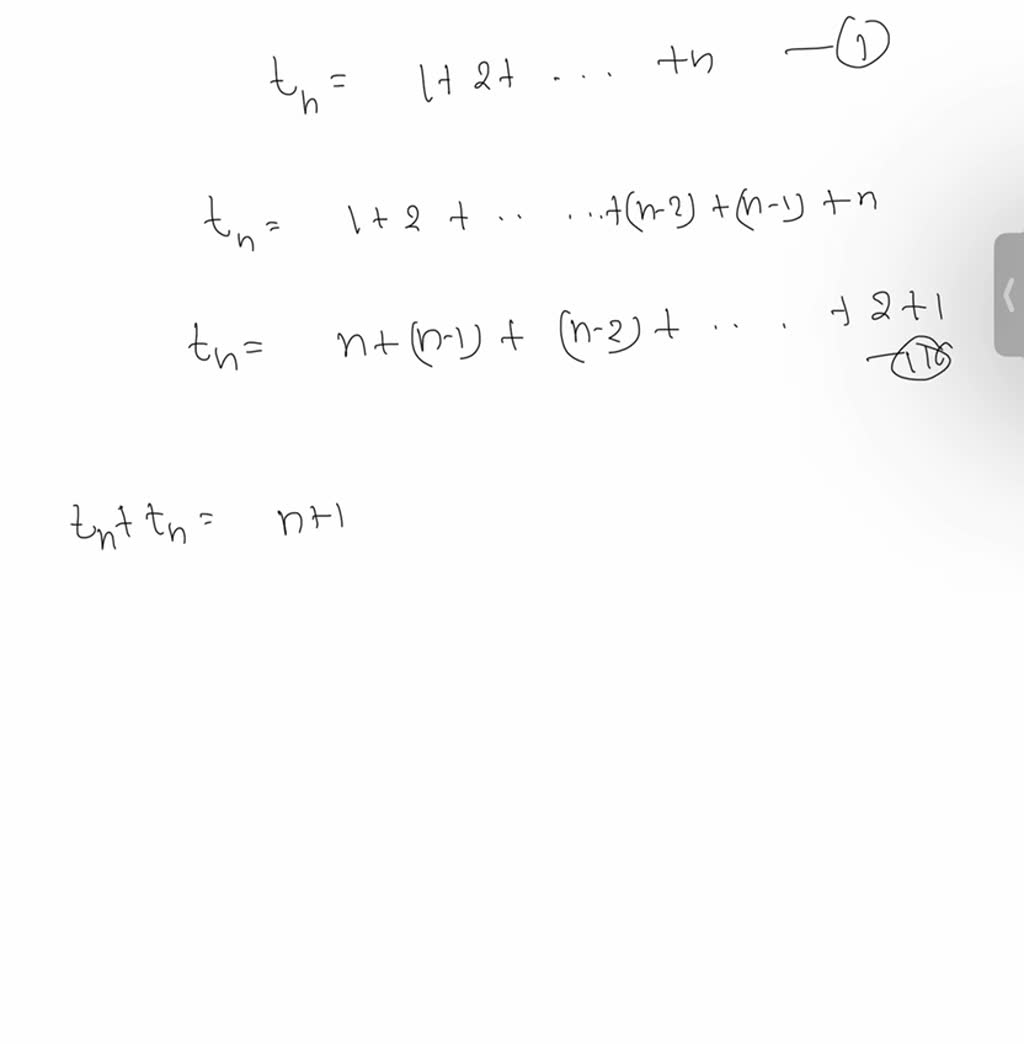 tₙ = 1+2+ .... +n —①
tₙ = 1+2+ .. ...+(n-2)+(n-1)+n
tₙ = n+(n-1)+(n-2)+ .. . . +2+1
tₙ+tₙ = n+1